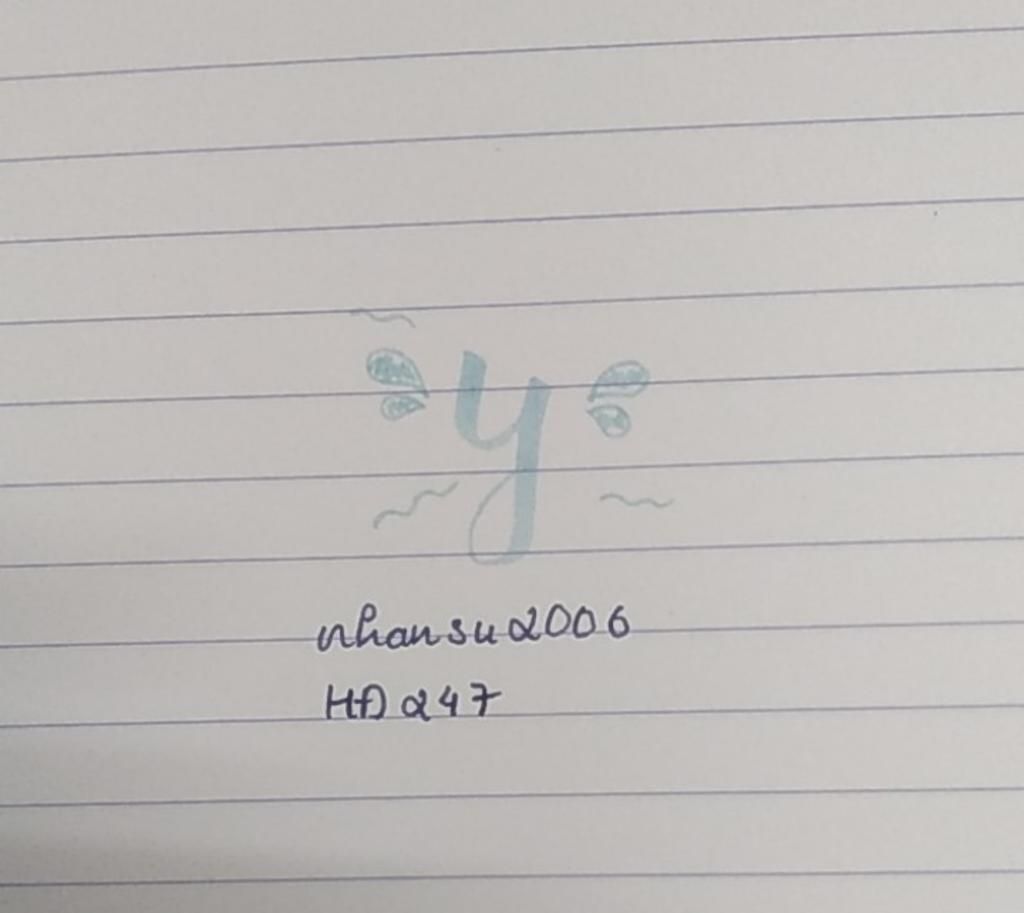 y
nhansu2006
HĐ247